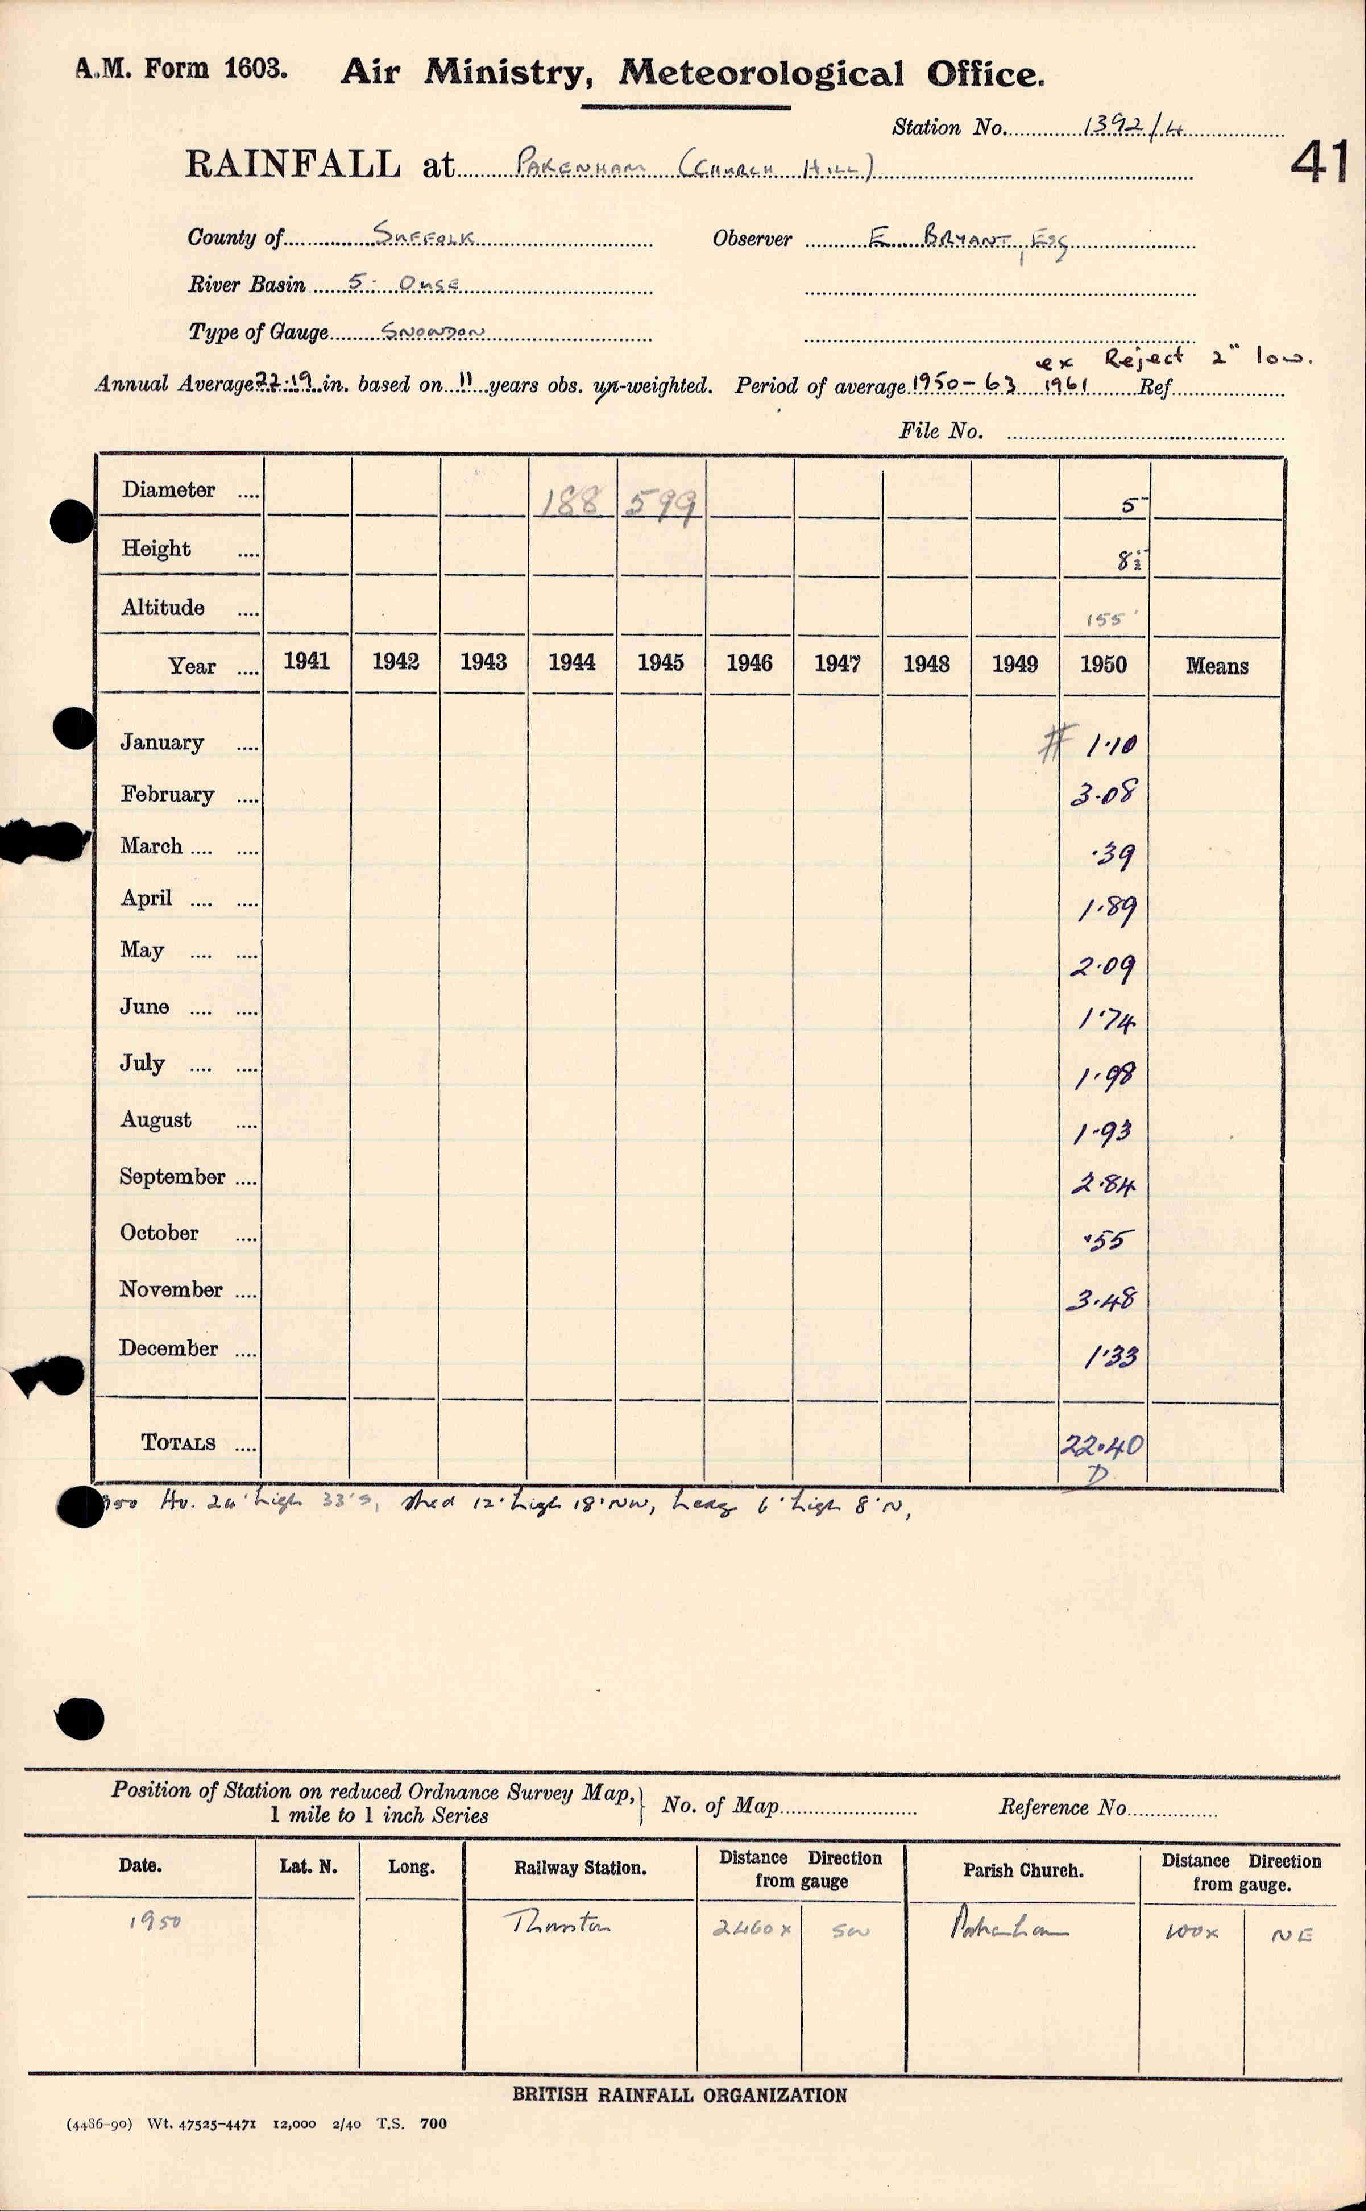 A.M. Form 1603. Air Ministry, Meteorological Office.
Station No. 1392/4
41
RAINFALL at PAKENHAM (CHURCH HILL)
County of SUFFOLK Observer E BRYANT, ESQ
River Basin 5: OUSE
Type of Gauge SNOWDON
ex Reject 2" low.
Annual Average 22.19 in. based on 11 years obs. un-weighted. Period of average 1950-63 1961 Ref.
File No.
Diameter .... 188 599 5
Height .... 8½
Altitude .... 155'
Year .... 1941 1942 1943 1944 1945 1946 1947 1948 1949 1950 Means
January .... # 1.10
February .... 3.08
March .... .... .39
April .... .... 1.89
May .... .... 2.09
June .... .... 1.74
July .... .... 1.98
August .... 1.93
September .... 2.84
October .... .55
November .... 3.48
December .... 1.33
TOTALS .... 22.40
D
950 Ho. 24' high 33'S, shed 12' high 18'NW, hedg 6' high 8'N,
Position of Station on reduced Ordnance Survey Map, 1 mile to 1 inch Series } No. of Map Reference No.
Date. Lat. N. Long. Railway Station. Distance Direction from gauge Parish Church. Distance Direction from gauge.
1950 Thurston 2460x SW Pakenham 100x NE
BRITISH RAINFALL ORGANIZATION
(4486-90) Wt. 47525-4471 12,000 2/40 T.S. 700